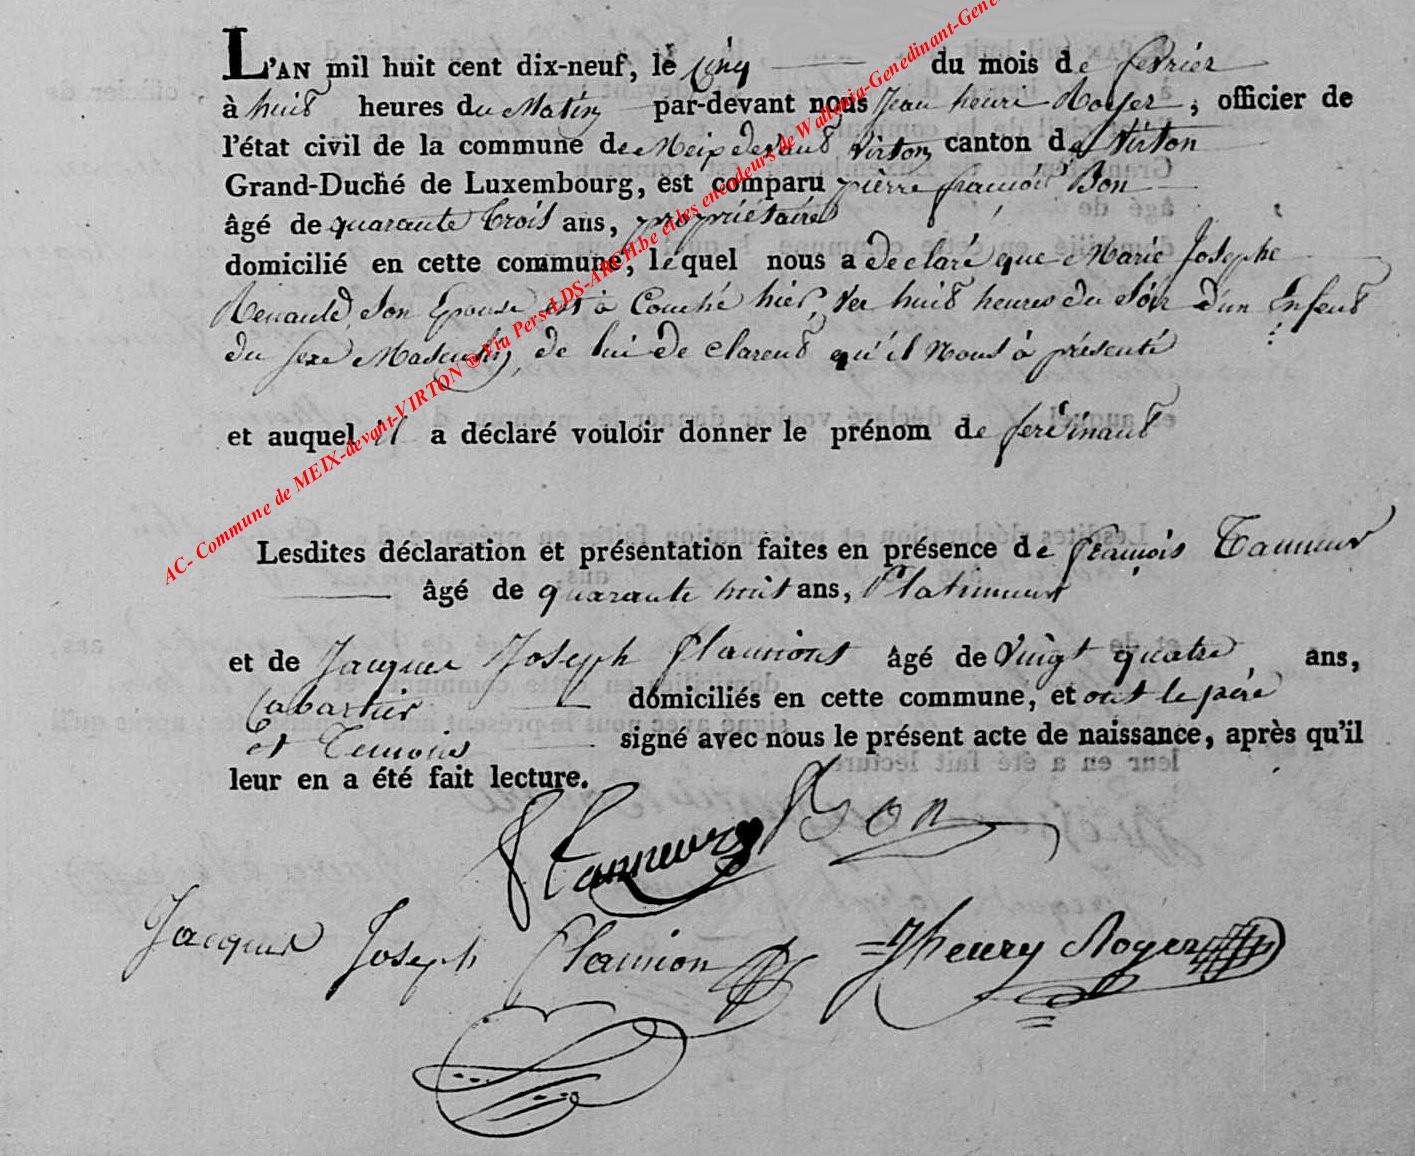 L'AN mil huit cent dix-neuf, le cinq du mois de fevrier
à huit heures du Matin par-devant nous Jean henri Royer, officier de
l'état civil de la commune de Meix devant Virton canton de Virton
Grand-Duché de Luxembourg, est comparu pierre françois Bon
âgé de quarante trois ans, propriétaire
domicilié en cette commune, lequel nous a declaré que Marie Josephe
Renauld, Son Epouse est à Couché hier, Ver huit heures du Soir d'un Enfent
du sexe Masculin, de lui declarent qu'il Nous à présenté
et auquel il a déclaré vouloir donner le prénom de ferdinant
Lesdites déclaration et présentation faites en présence de françois Tanneur
âgé de quarante huit ans, Platineur
et de Jacque Joseph Flamiont âgé de Vingt quatre, ans,
Cabartier domiciliés en cette commune, et ont le père
et Temoins signé avec nous le présent acte de naissance, après qu'il
leur en a été fait lecture.
f Tanneur Bon
Jacques Joseph Flamion Jhenry Royer
AC- Commune de MEIX-devant-VIRTON ® Via Pers-LDS-ARCH.be et les encodeurs de Wallonia-Genedinant-Gene